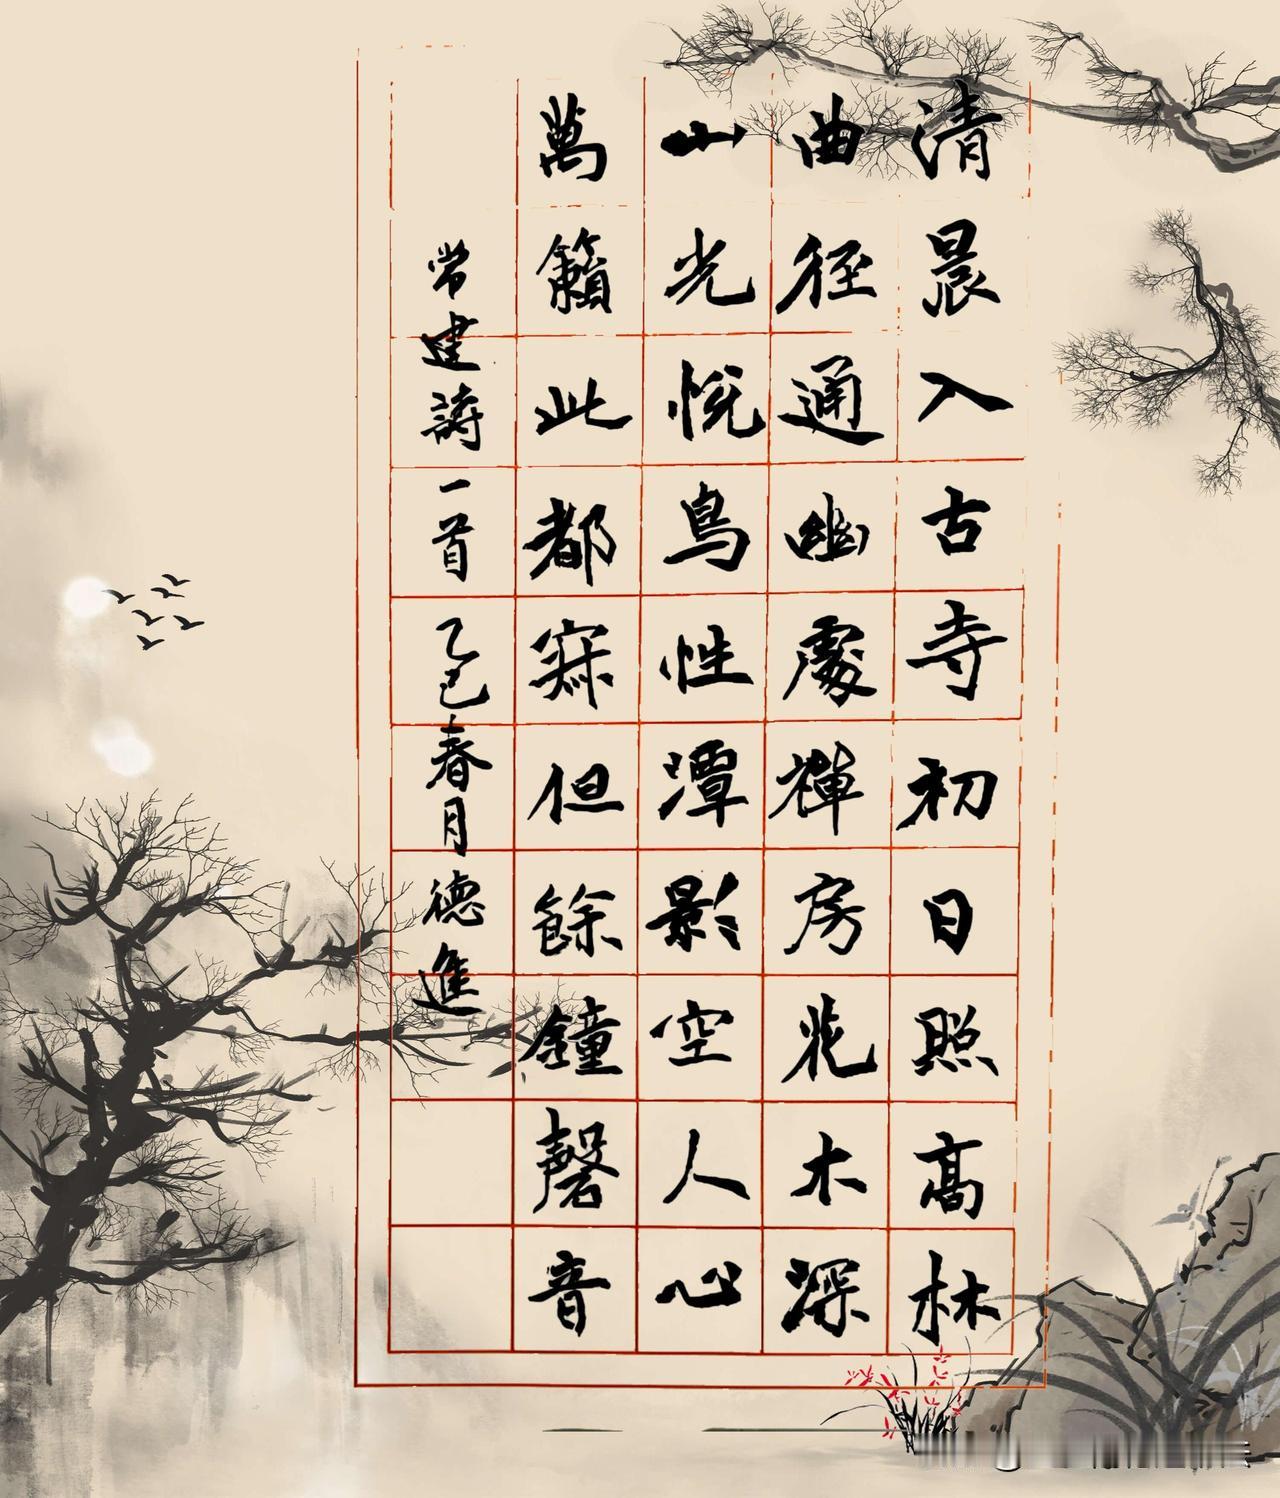 清晨入古寺初日照高林
曲径通幽處禪房花木深
山光悦鳥性潭影空人心
萬籟此都寂但餘鐘磬音
常建詩一首乙巳春月德進